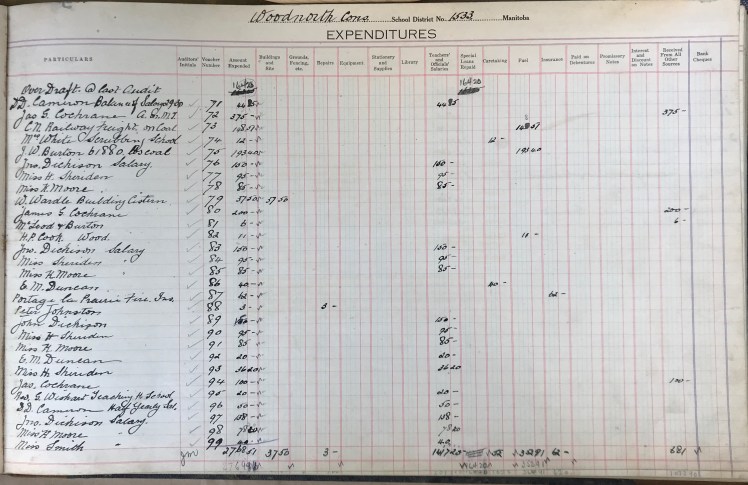 Woodnorth Cons School District No. 1533 Manitoba
EXPENDITURES
PARTICULARS Auditors' Initials Voucher Number Amount Expended Buildings and Site Grounds, Fencing, etc. Repairs Equipment Stationery and Supplies Library Teachers' and Officials' Salaries Special Loans Repaid Caretaking Fuel Insurance Paid on Debentures Promissory Notes Interest and Discount on Notes Received From All Other Sources Bank Cheques
Over Draft @ last Audit
D.D. Cameron Balance of Salary 71 4485 4485
Jas G. Cochrane 72 375- 375-
C.N. Railway freight on Coal 73
Mrs White Scrubbing School 74 12- 12-
J.W. Burton 61880 lbs coal 75 19340 19340
Jno. Dickison Salary 76 150- 150-
Miss H. Sheriden 77 95- 95-
Miss K. Moore 78 85- 85-
W. Wardle Building Cistern 79 3750 3750
James G Cochrane 80 200- 200-
McLeod & Burton 81 6- 6-
H.P. Cook Wood 82 11- 11-
Jno. Dickison Salary 83 150- 150-
Miss Sheriden " 84 95- 95-
Miss K Moore " 85 85- 85-
E. M. Duncan 86 40- 40-
Portage La Prairie Fire Ins. 87 62- 62-
Peter Johnston 88 3- 3-
John Dickison 89 150-
Miss H Sheriden 90 95- 95-
Miss K. Moore 91 85 85-
E. M. Duncan 92 20- 20-
Miss H. Sheriden 93 3620 3620
Jas. Cochrane 94 100- 100-
Teaching H. School 95 20- 20-
D.D. Cameron Half Yearly Sal. 96 50- 50-
Jno. Dickison Salary 97 158- 158-
Miss K. Moore " 98 7820 7820
Miss Smith " 99 40- 40-
276851 3750 3- 141720 52 62- 681